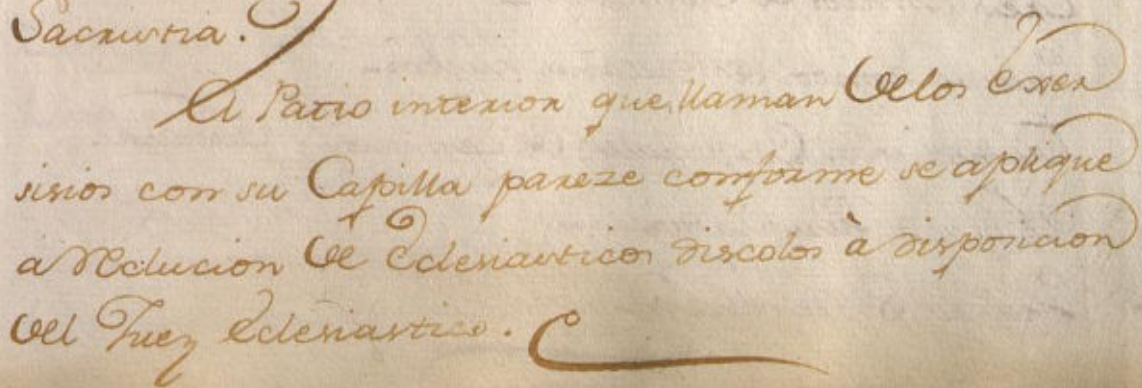 Sacristia.
El Patio interior que llaman de los Exer
sisios con su Capilla pareze conforme se aplique
a reclucion de Eclesiasticos discolos à disposicion
del Juez Eclesiastico.